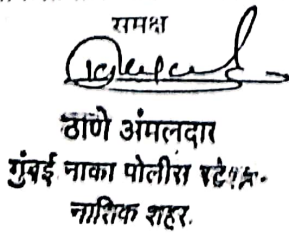 समक्ष
ठाणे अंमलदार
मुंबई नाका पोलीस स्टेशन.
नाशिक शहर.